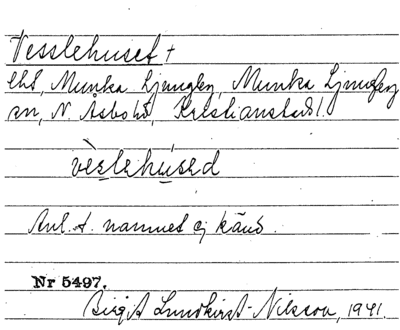 Vesslehuset +
lht, Munka Ljungby, Munka Ljungby
sn, N. Åsbo hd, Kristianstads l.
vèslehúsed
Anl. t. namnet ej känd.
Nr 5497.
Birgit Lundkvist-Nilsson, 1941.